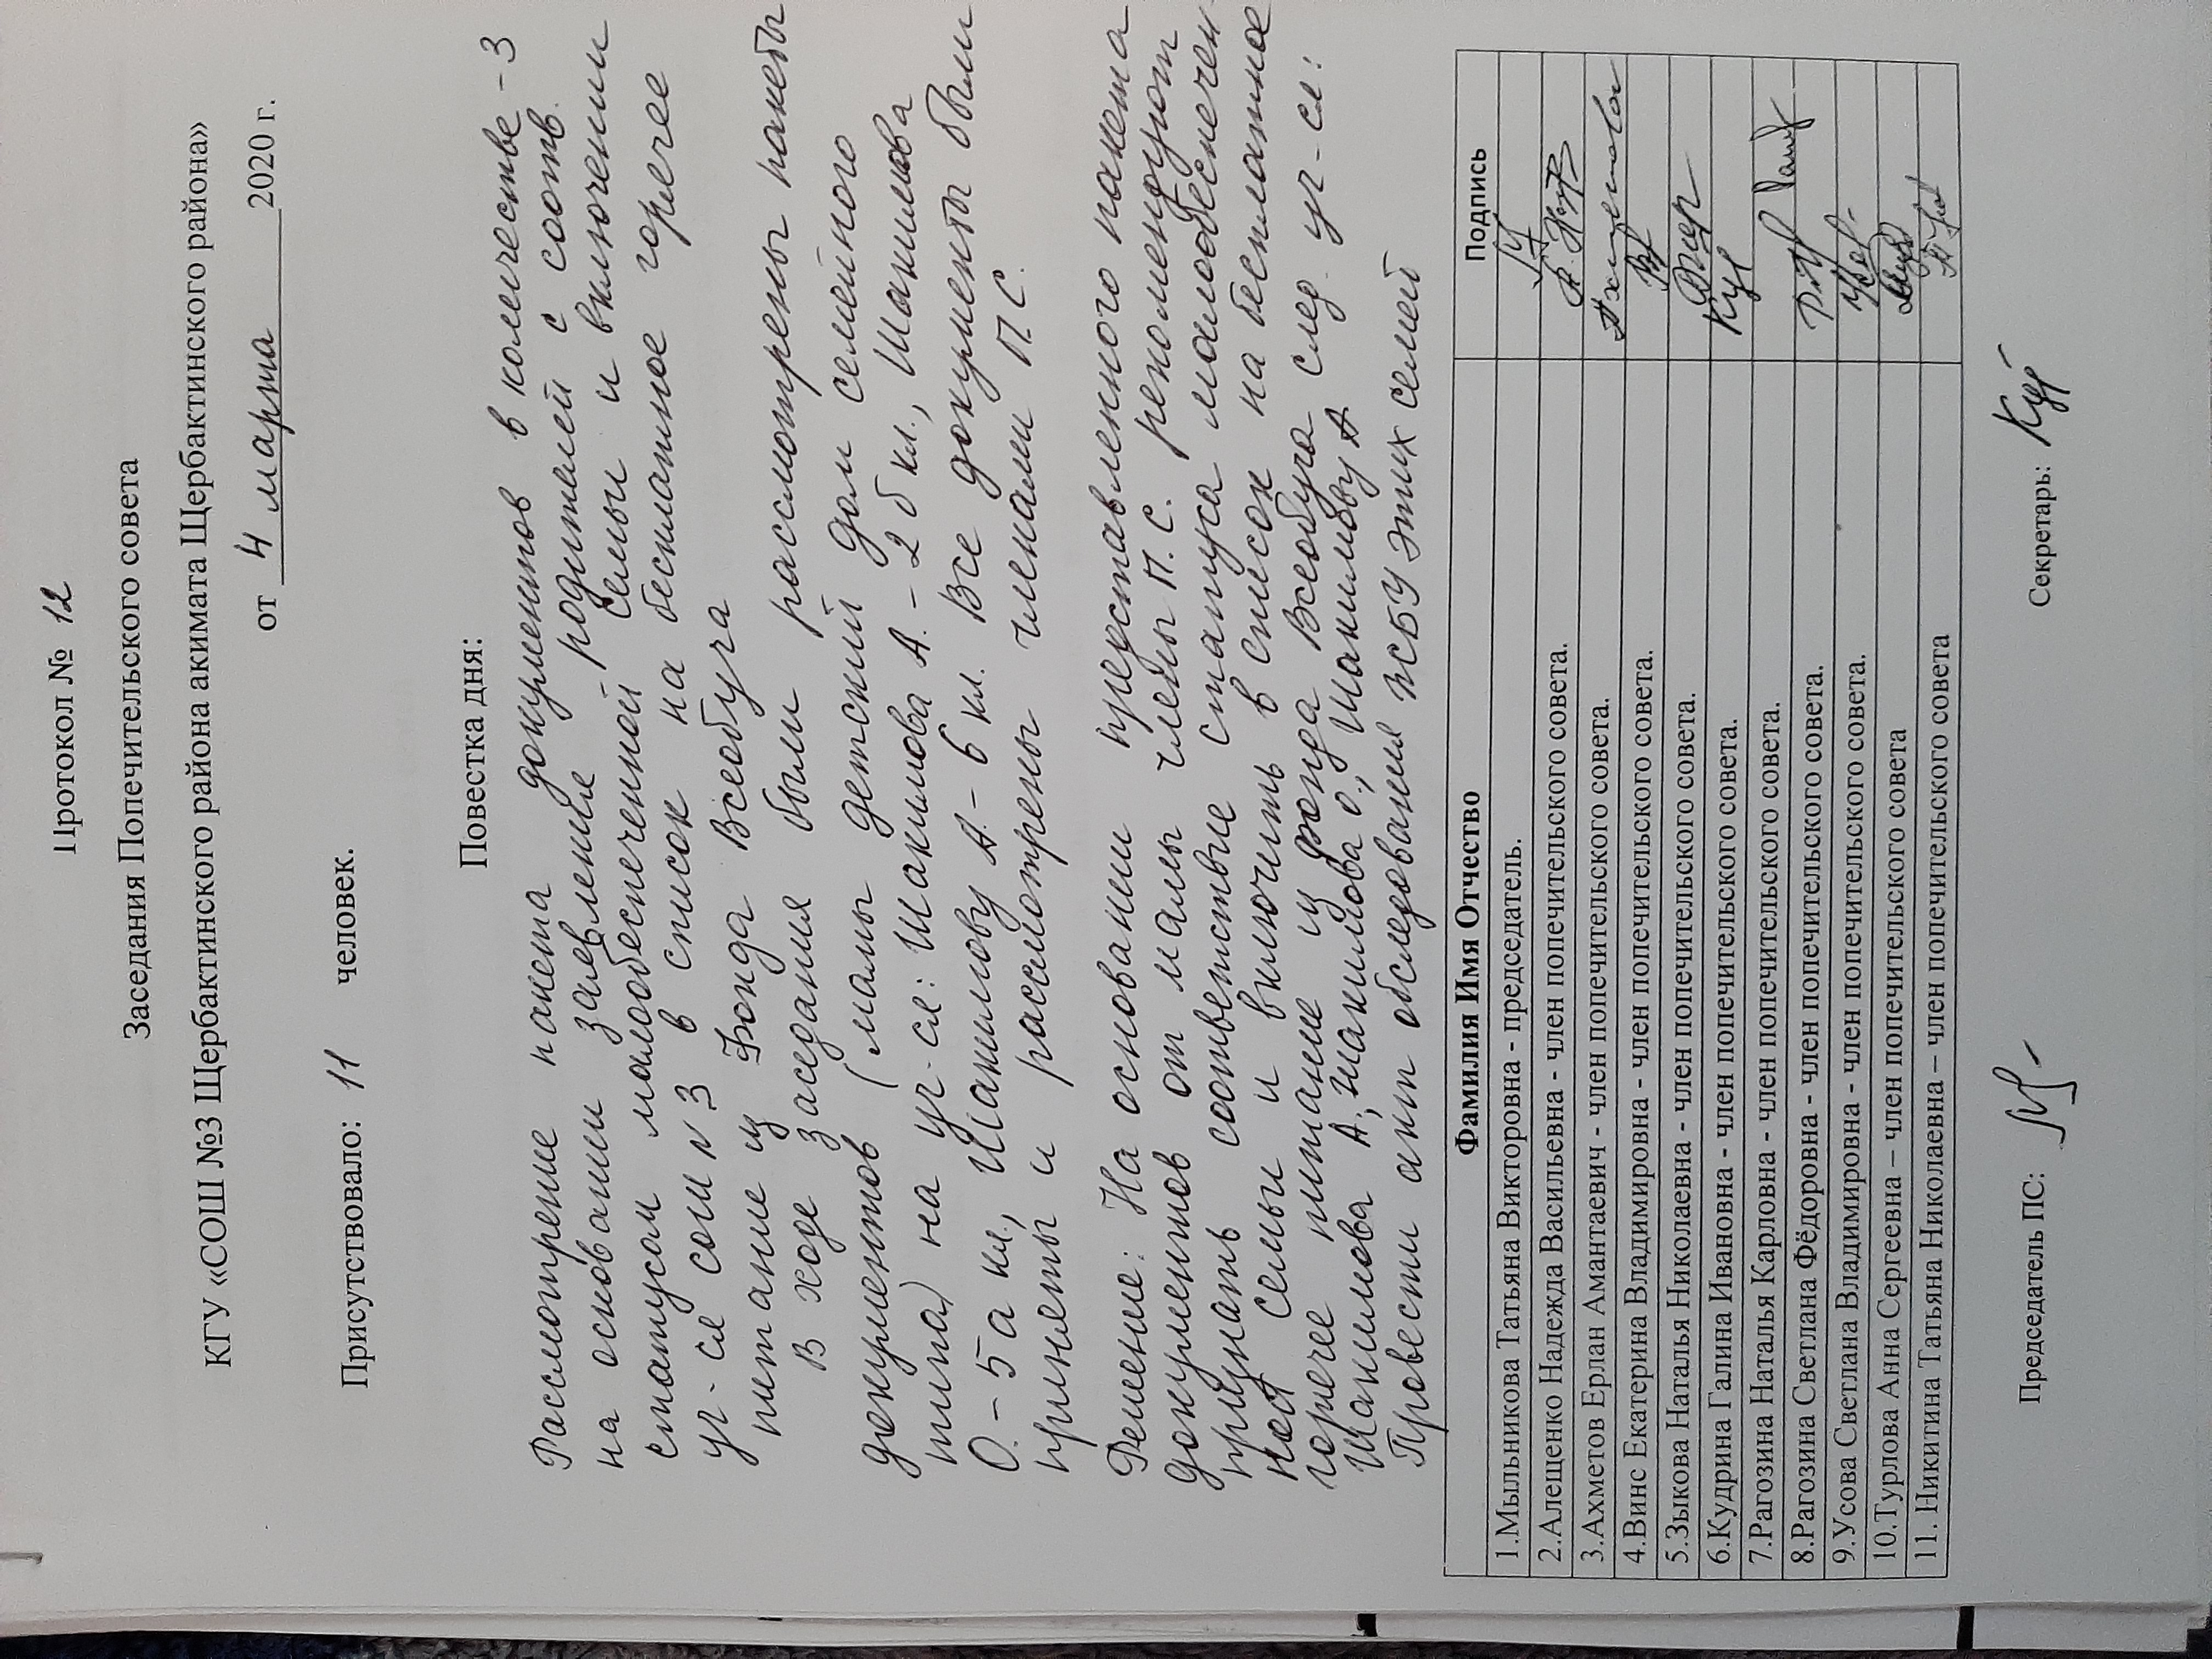 Протокол № 12
Заседания Попечительского совета
КГУ «СОШ №3 Щербактинского района акимата Щербактинского района»
от 4 марта 2020 г.
Присутствовало: 11 человек.
Повестка дня:
Рассмотрение пакета документов в количестве - 3
на основании заявление родителей с соотв.
статусом малообеспеченной семьи и включении
уч-ся сош №3 в список на бесплатное горячее
питание из Фонда Всеобуча
В ходе заседания были рассмотрены пакеты
документов (мамы детский дом семейного
типа) на уч-ся: Шакимова А. - 2 б кл., Шакимова
О. - 5 а кл., Шакимову А. - 6 кл. Все документы были
приняты и рассмотрены членами П.С.
Решение: На основании представленного пакета
документов от мамы члены П.С. рекомендуют
признать соответствие статуса малообеспечен-
ной семьи и включить в список на бесплатное
горячее питание из фонда Всеобуча след. уч-ся:
Шакимова А, Шакимова О, Шакимову А
Провести акт обследования ЖБУ этих семей
Фамилия Имя Отчество Подпись
1.Мыльникова Татьяна Викторовна - председатель.
2.Алещенко Надежда Васильевна - член попечительского совета.
3.Ахметов Ерлан Амантаевич - член попечительского совета.
4.Винс Екатерина Владимировна - член попечительского совета.
5.Зыкова Наталья Николаевна - член попечительского совета.
6.Кудрина Галина Ивановна - член попечительского совета.
7.Рагозина Наталья Карловна - член попечительского совета.
8.Рагозина Светлана Фёдоровна - член попечительского совета.
9.Усова Светлана Владимировна - член попечительского совета.
10.Турлова Анна Сергеевна – член попечительского совета
11. Никитина Татьяна Николаевна – член попечительского совета
Председатель ПС: Секретарь: